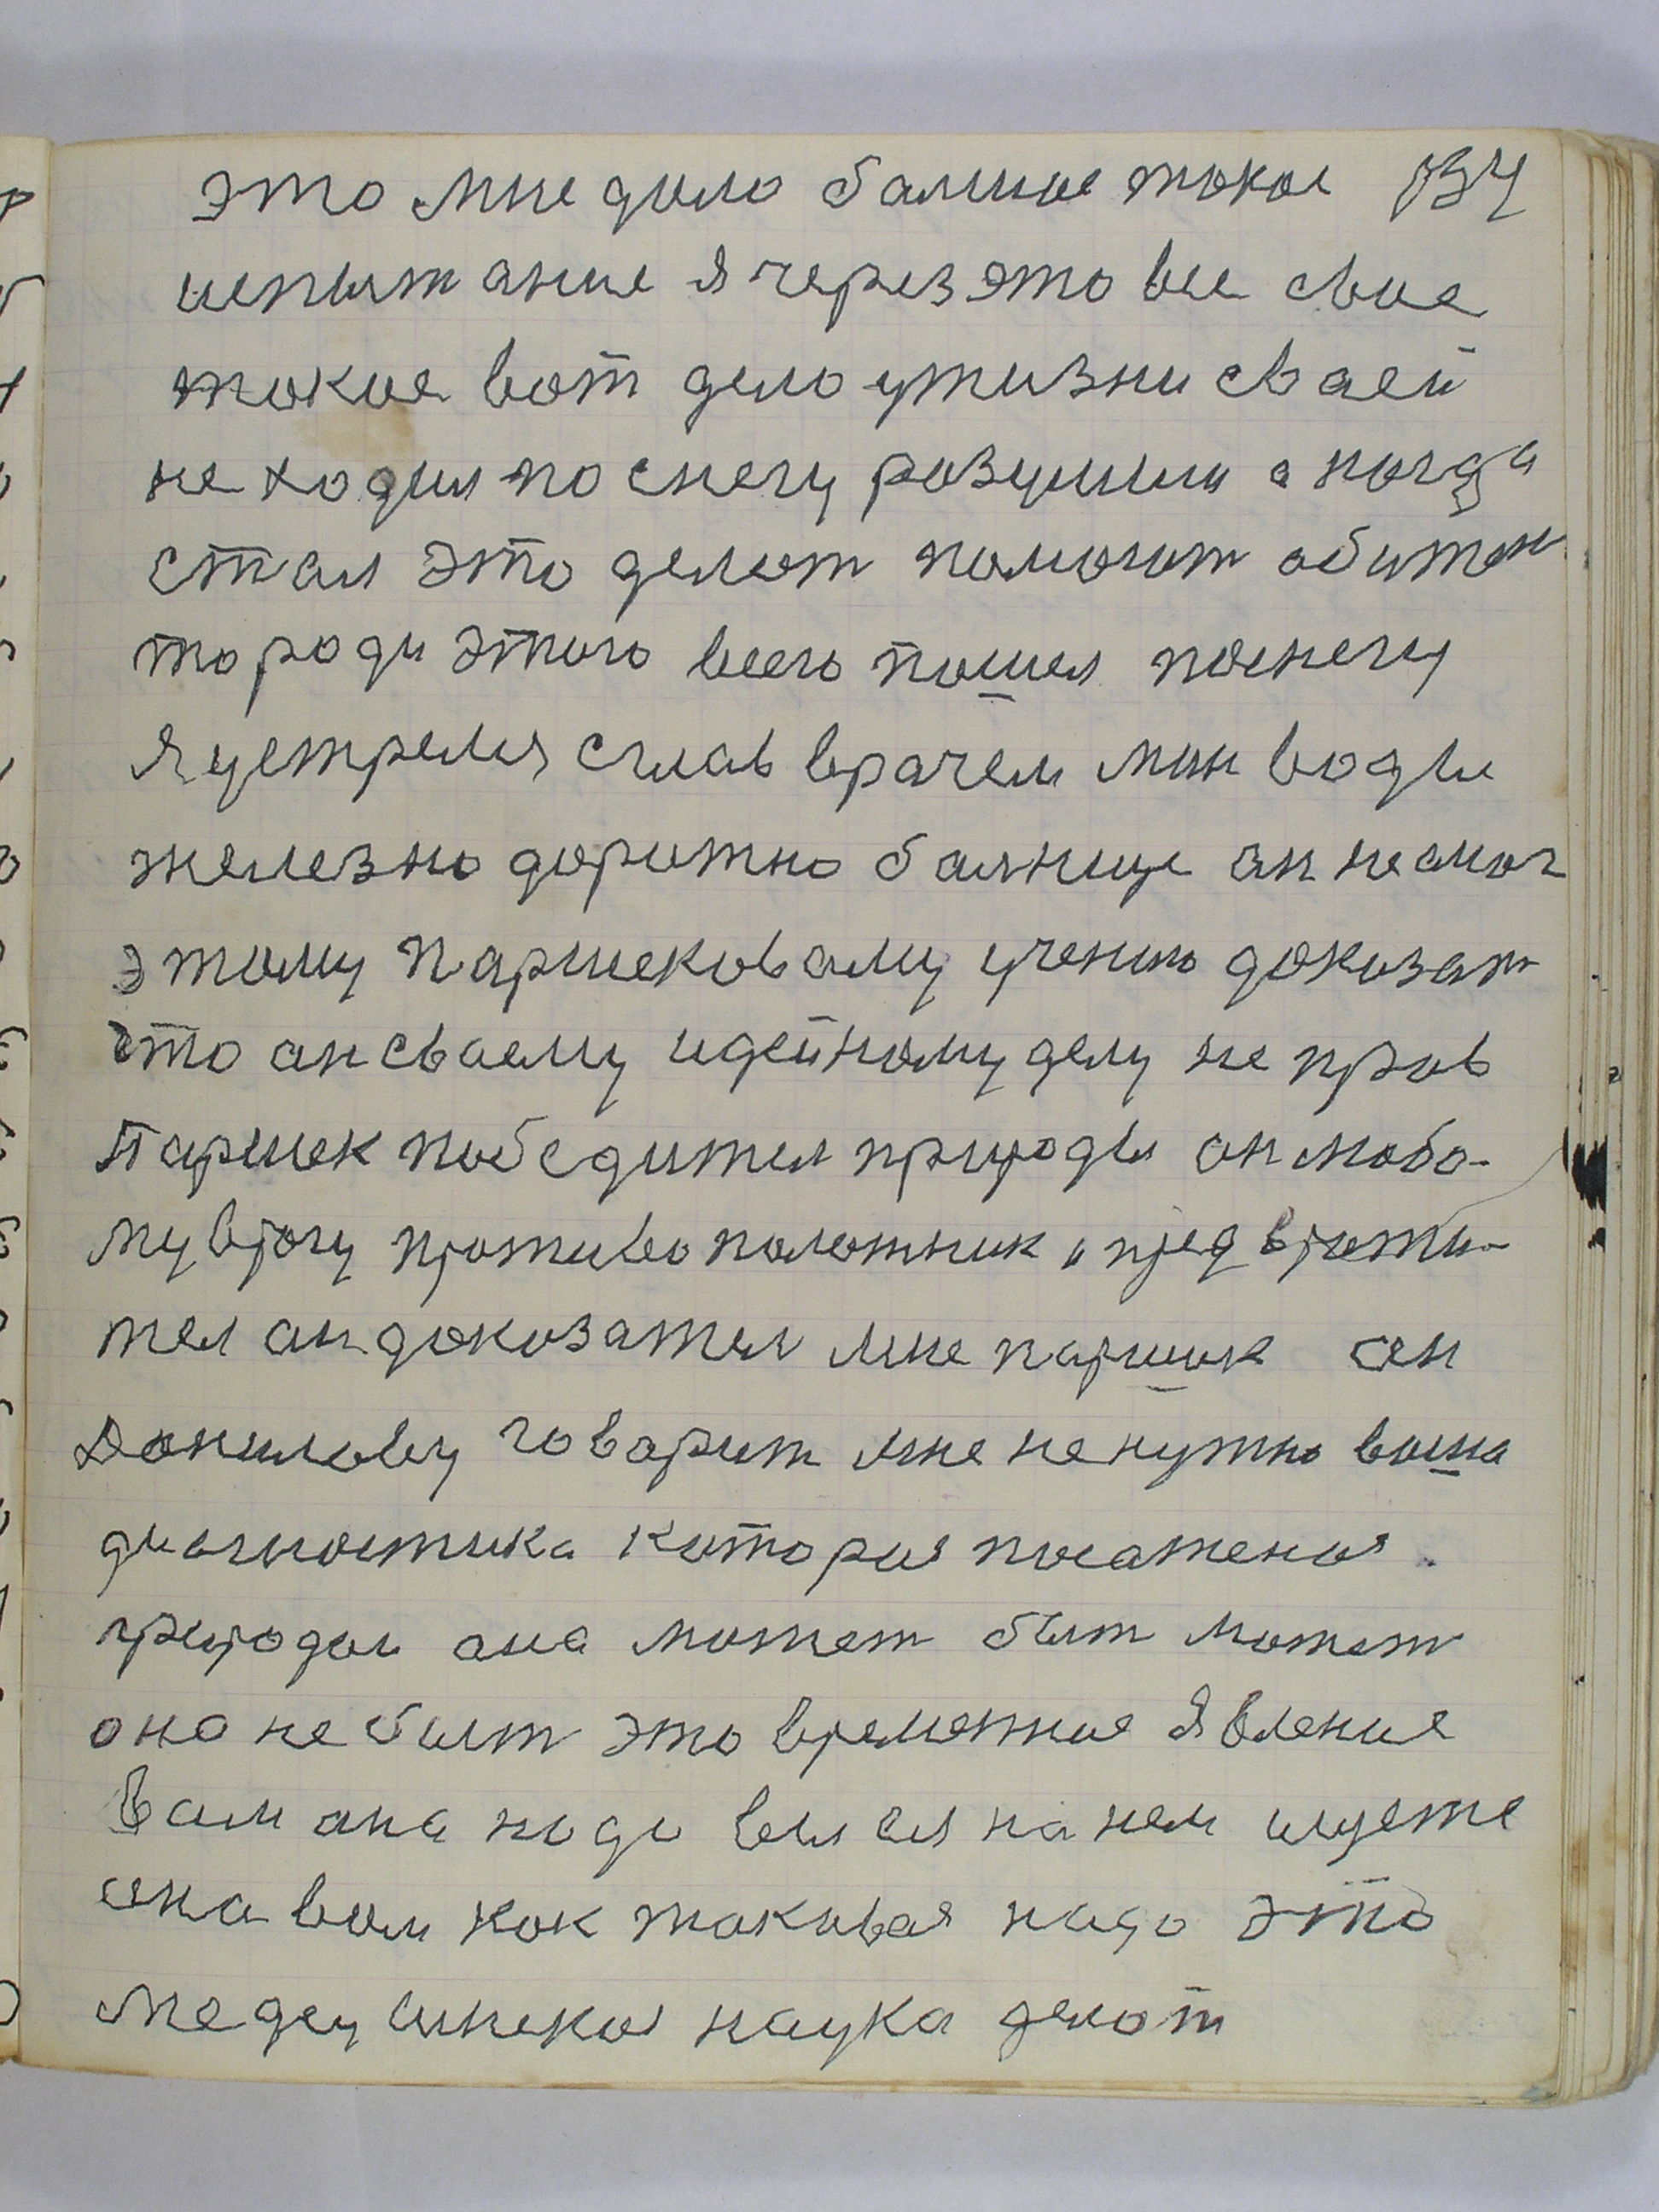 это мне дало балшое токое 134
испытание я через это все свое
токое вот дело ужизни сваей
не ходил по снегу розумши а когда
стал это делат помогат обижен
то роди этого всего пошел поснегу
я устрелся с глав врачем мин воды
железно дорожно балнице ан несмог
этому паршековаму учению доказат
что ан сваему идейному делу не прав
Паршек победител природы ан любо-
му врагу противо положник и пред врати-
тел ан доказател мне паршик ан
Донилову говарит мне ненужно ваша
диагностика которая посаженая
природаи ана может быт может
она не быт это временное явление
вам ана нада вы ея на нем ищете
ана вам как таковая надо это
медецинская наука делат